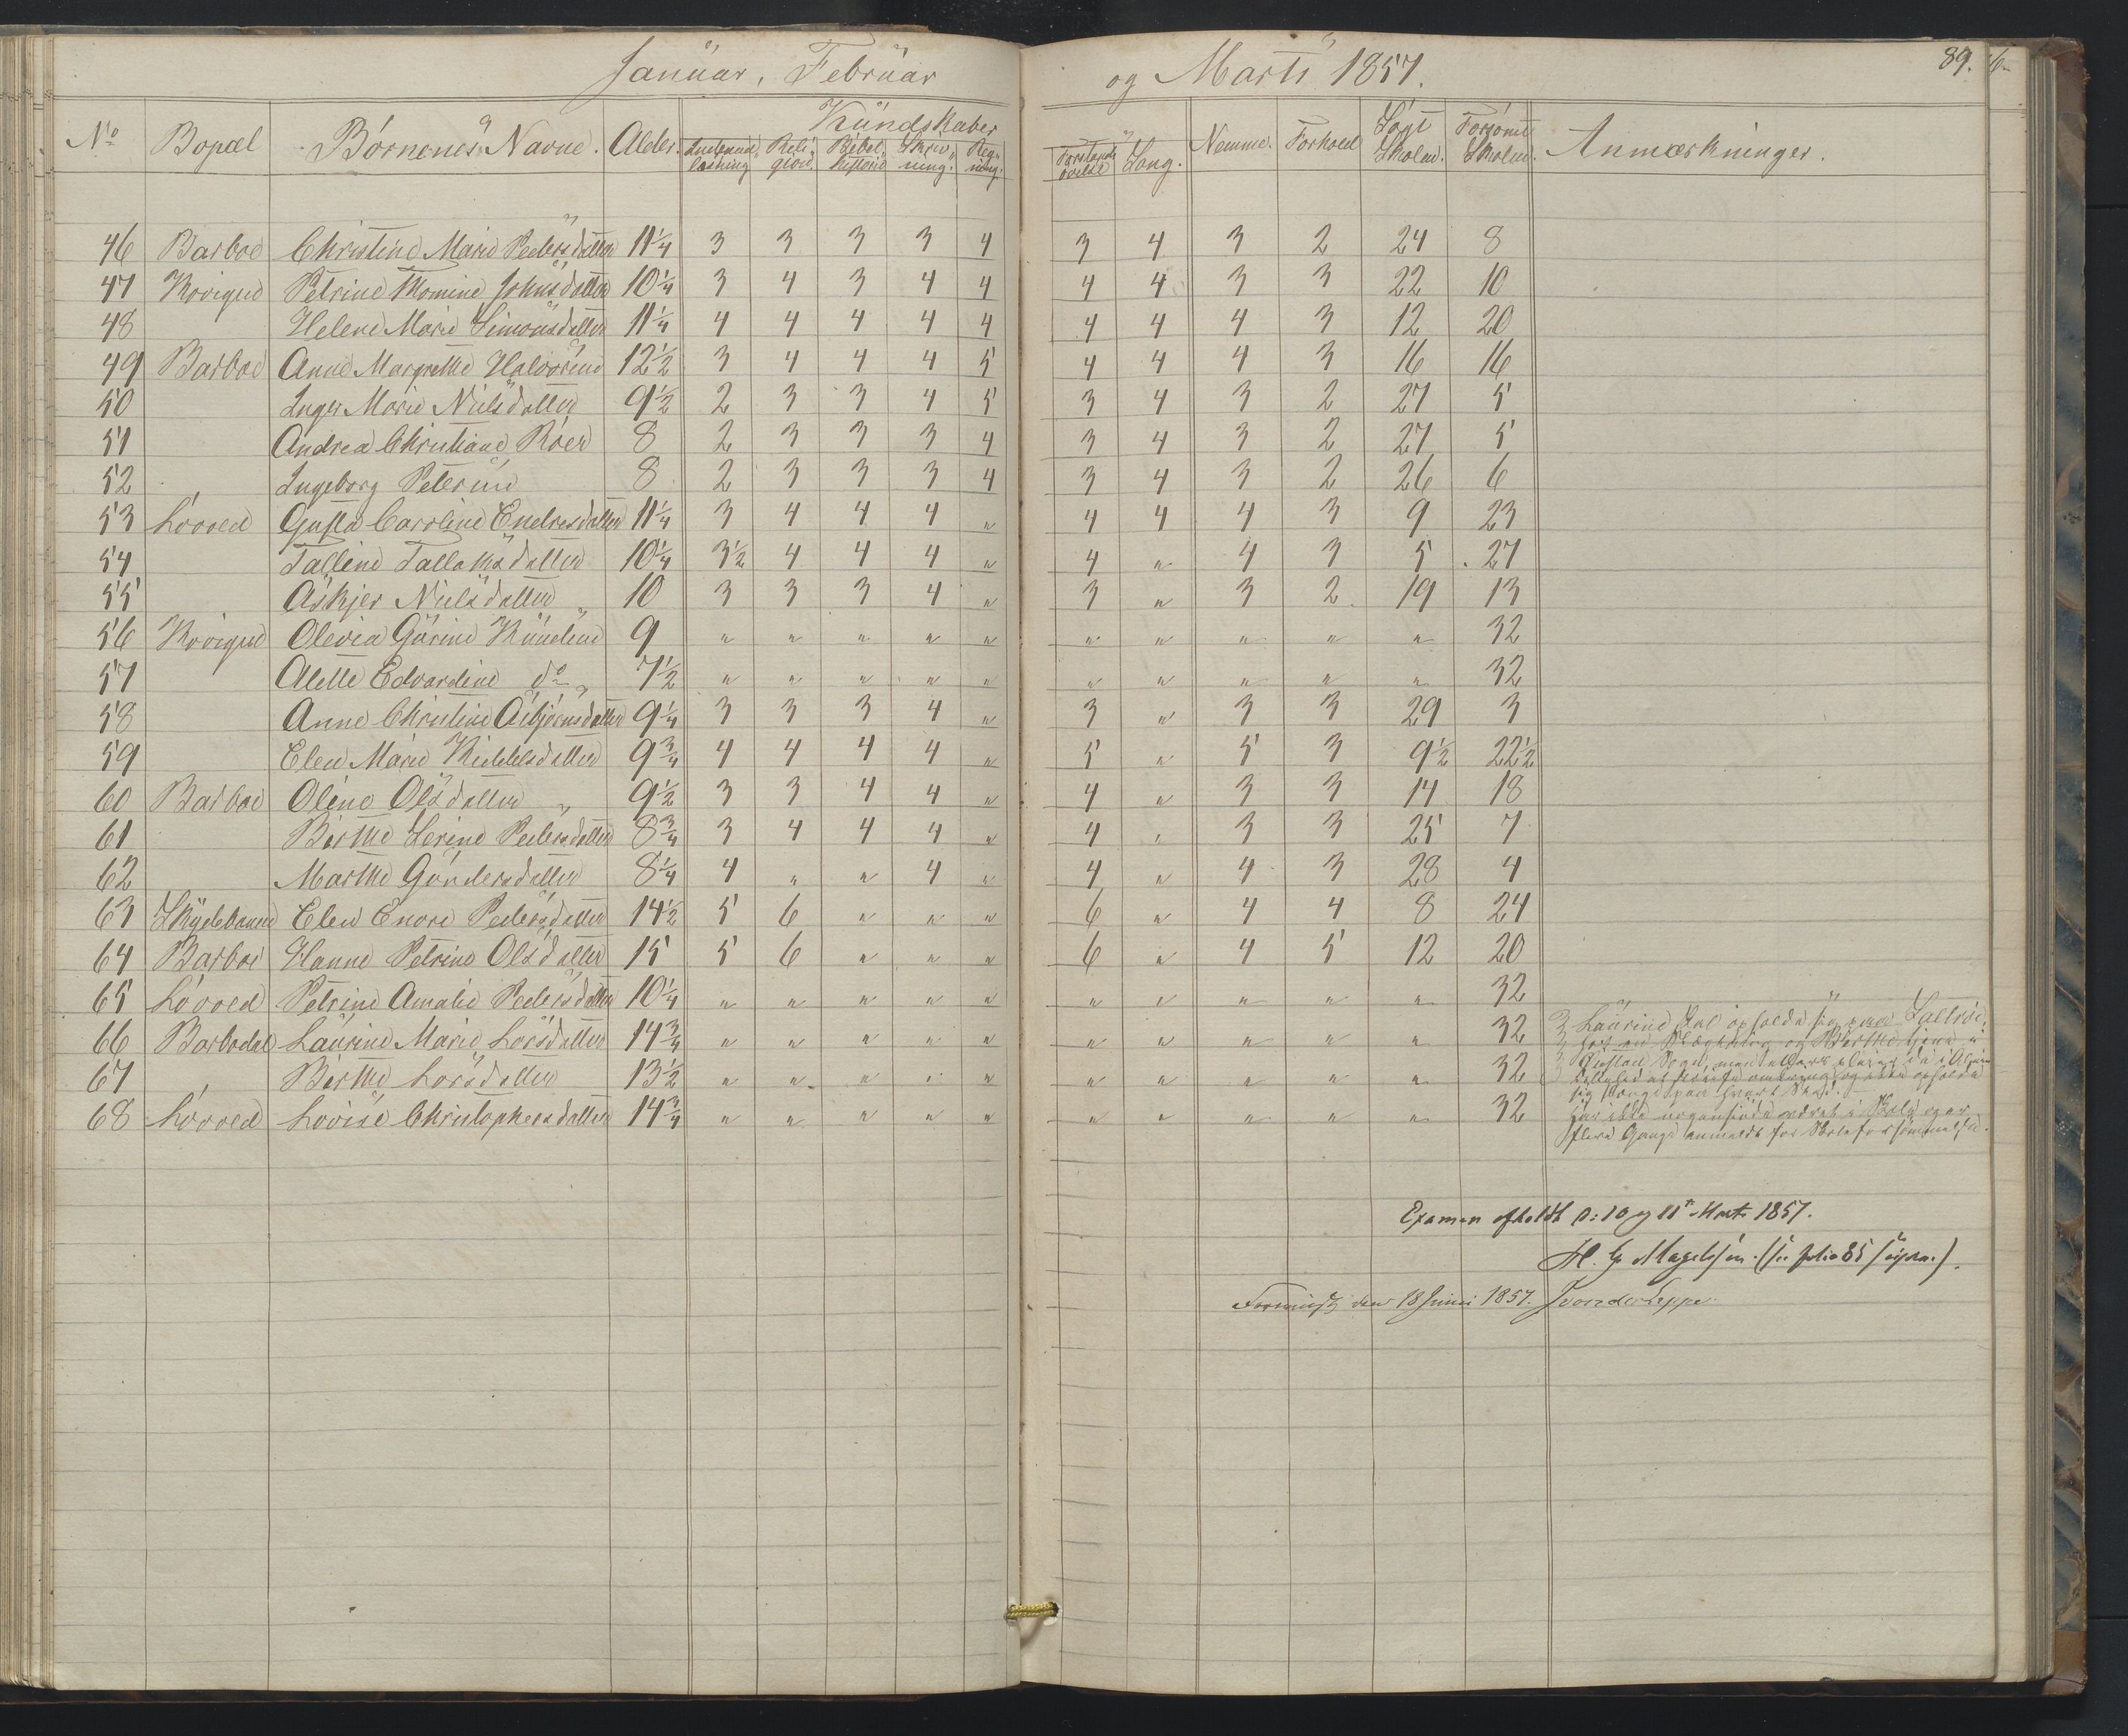 Januar, Februar og Marts 1857. 89.
No Bopæl Børnenes Navne. Alder. Kundskaber Nemme. Forhold Søgt Skolen. Forsømt Skolen. Anmærkninger.
Indenad læsning Religion. Bibelhistorie Skrivning. Regning. Forstands øvelse Sang.
46 Barboe Christine Marie Pedersdatter 11 1/4 3 3 3 3 4 3 4 3 2 24 8
47 Petrine Thomine Johnsdatter 10 1/4 3 4 3 4 4 4 4 3 3 22 10
48 Helene Marie Simonsdatter 11 1/4 4 4 4 4 4 4 4 4 3 12 20
49 Barboe Anne Margrethe Halvorsine 12 1/2 3 4 4 4 5 4 4 4 3 16 16
50 Inger Marie Nielsdatter 9 1/2 2 3 3 4 5 3 4 3 2 27 5
51 Andrea Christiane Röer 8 2 3 3 3 4 3 4 3 2 27 5
52 Ingeborg Peterine 8 2 3 3 3 4 3 4 3 2 26 6
53 Løvved Gusta Caroline Endresdatter 11 1/4 3 4 4 4 " 4 4 4 3 9 23
54 Talline Tallaksdatter 10 1/4 3 1/2 4 4 4 " 4 " 4 3 5 27
55 Askjer Nielsdatter 10 3 3 3 4 " 3 " 3 2 19 13
56 Olevia Gurine 9 " " " " " " " " " " 32
57 Alette Edvardine do 7 1/2 " " " " " " " " " " 32
58 Anne Christine Asbjørnsdatter 9 1/4 3 3 3 4 " 3 " 3 3 29 3
59 Elen Marie Kittelsdatter 9 3/4 4 4 4 4 " 5 " 5 3 9 1/2 22 1/2
60 Barboe Oline Olsdatter 9 1/2 3 3 4 4 " 4 " 3 3 14 18
61 Birthe Serine Pedersdatter 8 3/4 3 4 4 4 " 4 " 3 3 25 7
62 Marthe Gundersdatter 8 1/4 4 " " 4 " 4 " 4 3 28 4
63 Skydebanen Elen Enore Pedersdatter 14 1/2 5 6 " " " 6 " 4 4 8 24
64 Barboe Hanne Petrine Olsdatter 15 5 6 " " " 6 " 4 5 12 20
65 Løvved Petrine Amalie Pedersdatter 10 1/4 " " " " " " " " " " 32
66 Barbodal Laurine Marie Larsdatter 14 3/4 " " " " " " " " " " 32
67 Birthe Larsdatter 13 1/2 " " " " " " " " " " 32
68 Løvved Lovise Christophersdatter 14 3/4 " " " " " " " " " " 32
Laurine skal opholde sig paa
og Birthe tjene i
Sogn, men
omkring, og ikke opholde
sig længe paa hvert Sted.
har ikke været i Skole og er
flere Gange anmeldt for Skoleforsømmelse.
Examen afholdt d: 10 og 11te Marts 1857.
H. G. Magelssen. (se folio 85 supra.)
den 18 Juni 1857. J von der Lippe.